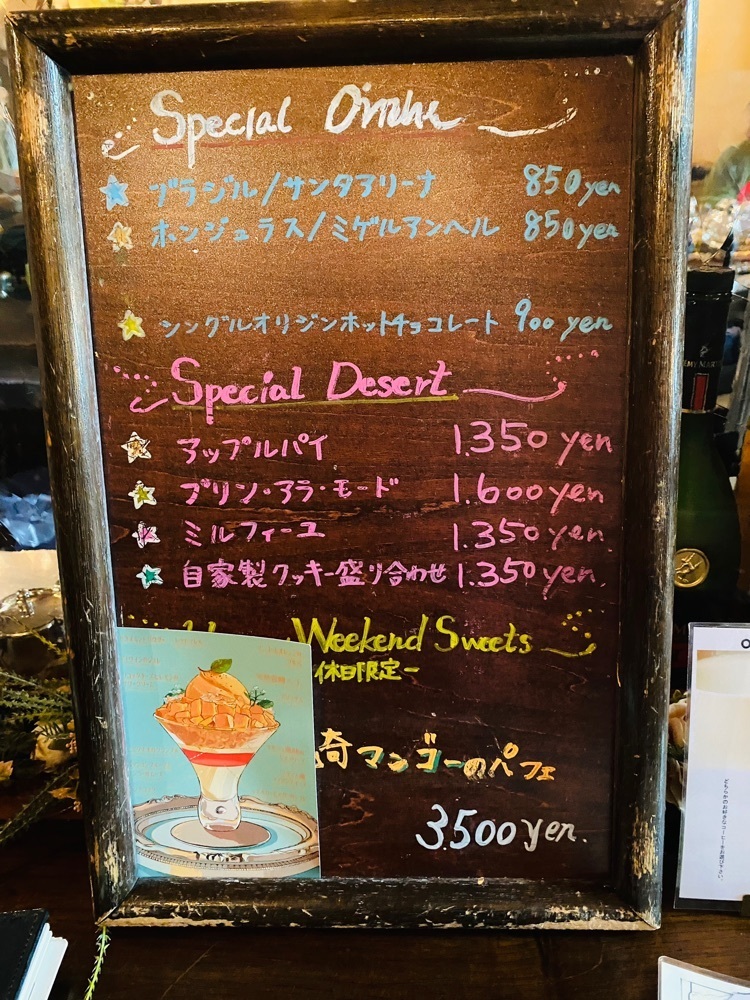 Special Drink
ブラジル/サンタアリーナ 850yen
ホンジュラス/ミゲルアンヘル 850yen
シングルオリジンホットチョコレート 900 yen
Special Desert
アップルパイ 1.350 yen
プリン・アラ・モード 1.600yen
ミルフィーユ 1.350yen
自家製クッキー盛り合わせ 1.350yen.
Weekend Sweets
休日限定-
崎マンゴーのパフェ
3.500yen.
どちらかのお好きなコーヒーをお選び下さい。